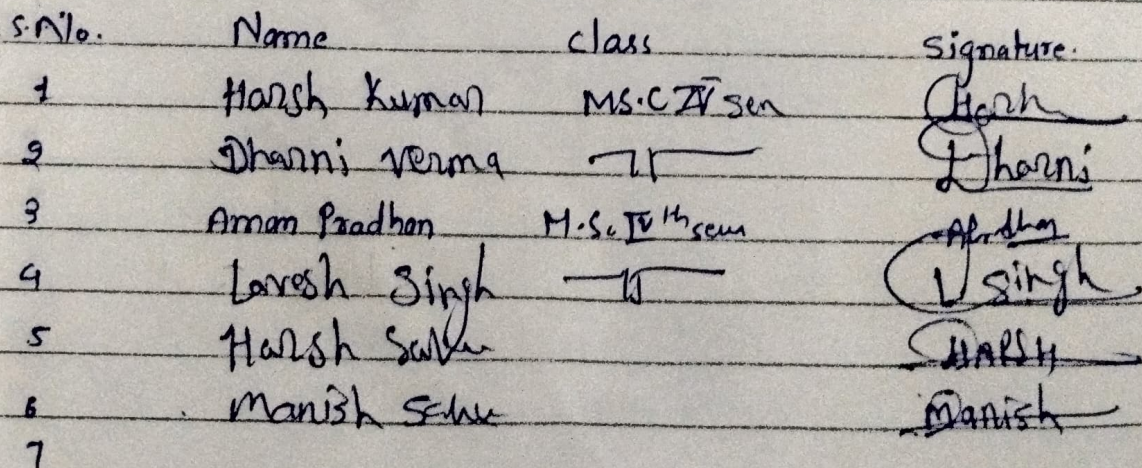 S.No. Name class Signature.
1 Harsh Kumar MS.C IV sem Harsh
2 Dharni Verma —〃— Dharni
3 Aman Pradhan M.Sc IVth sem
4 Lavesh Singh —〃— L Singh
5 Harsh Sahu HARSH
6 Manish Sahu Manish
7